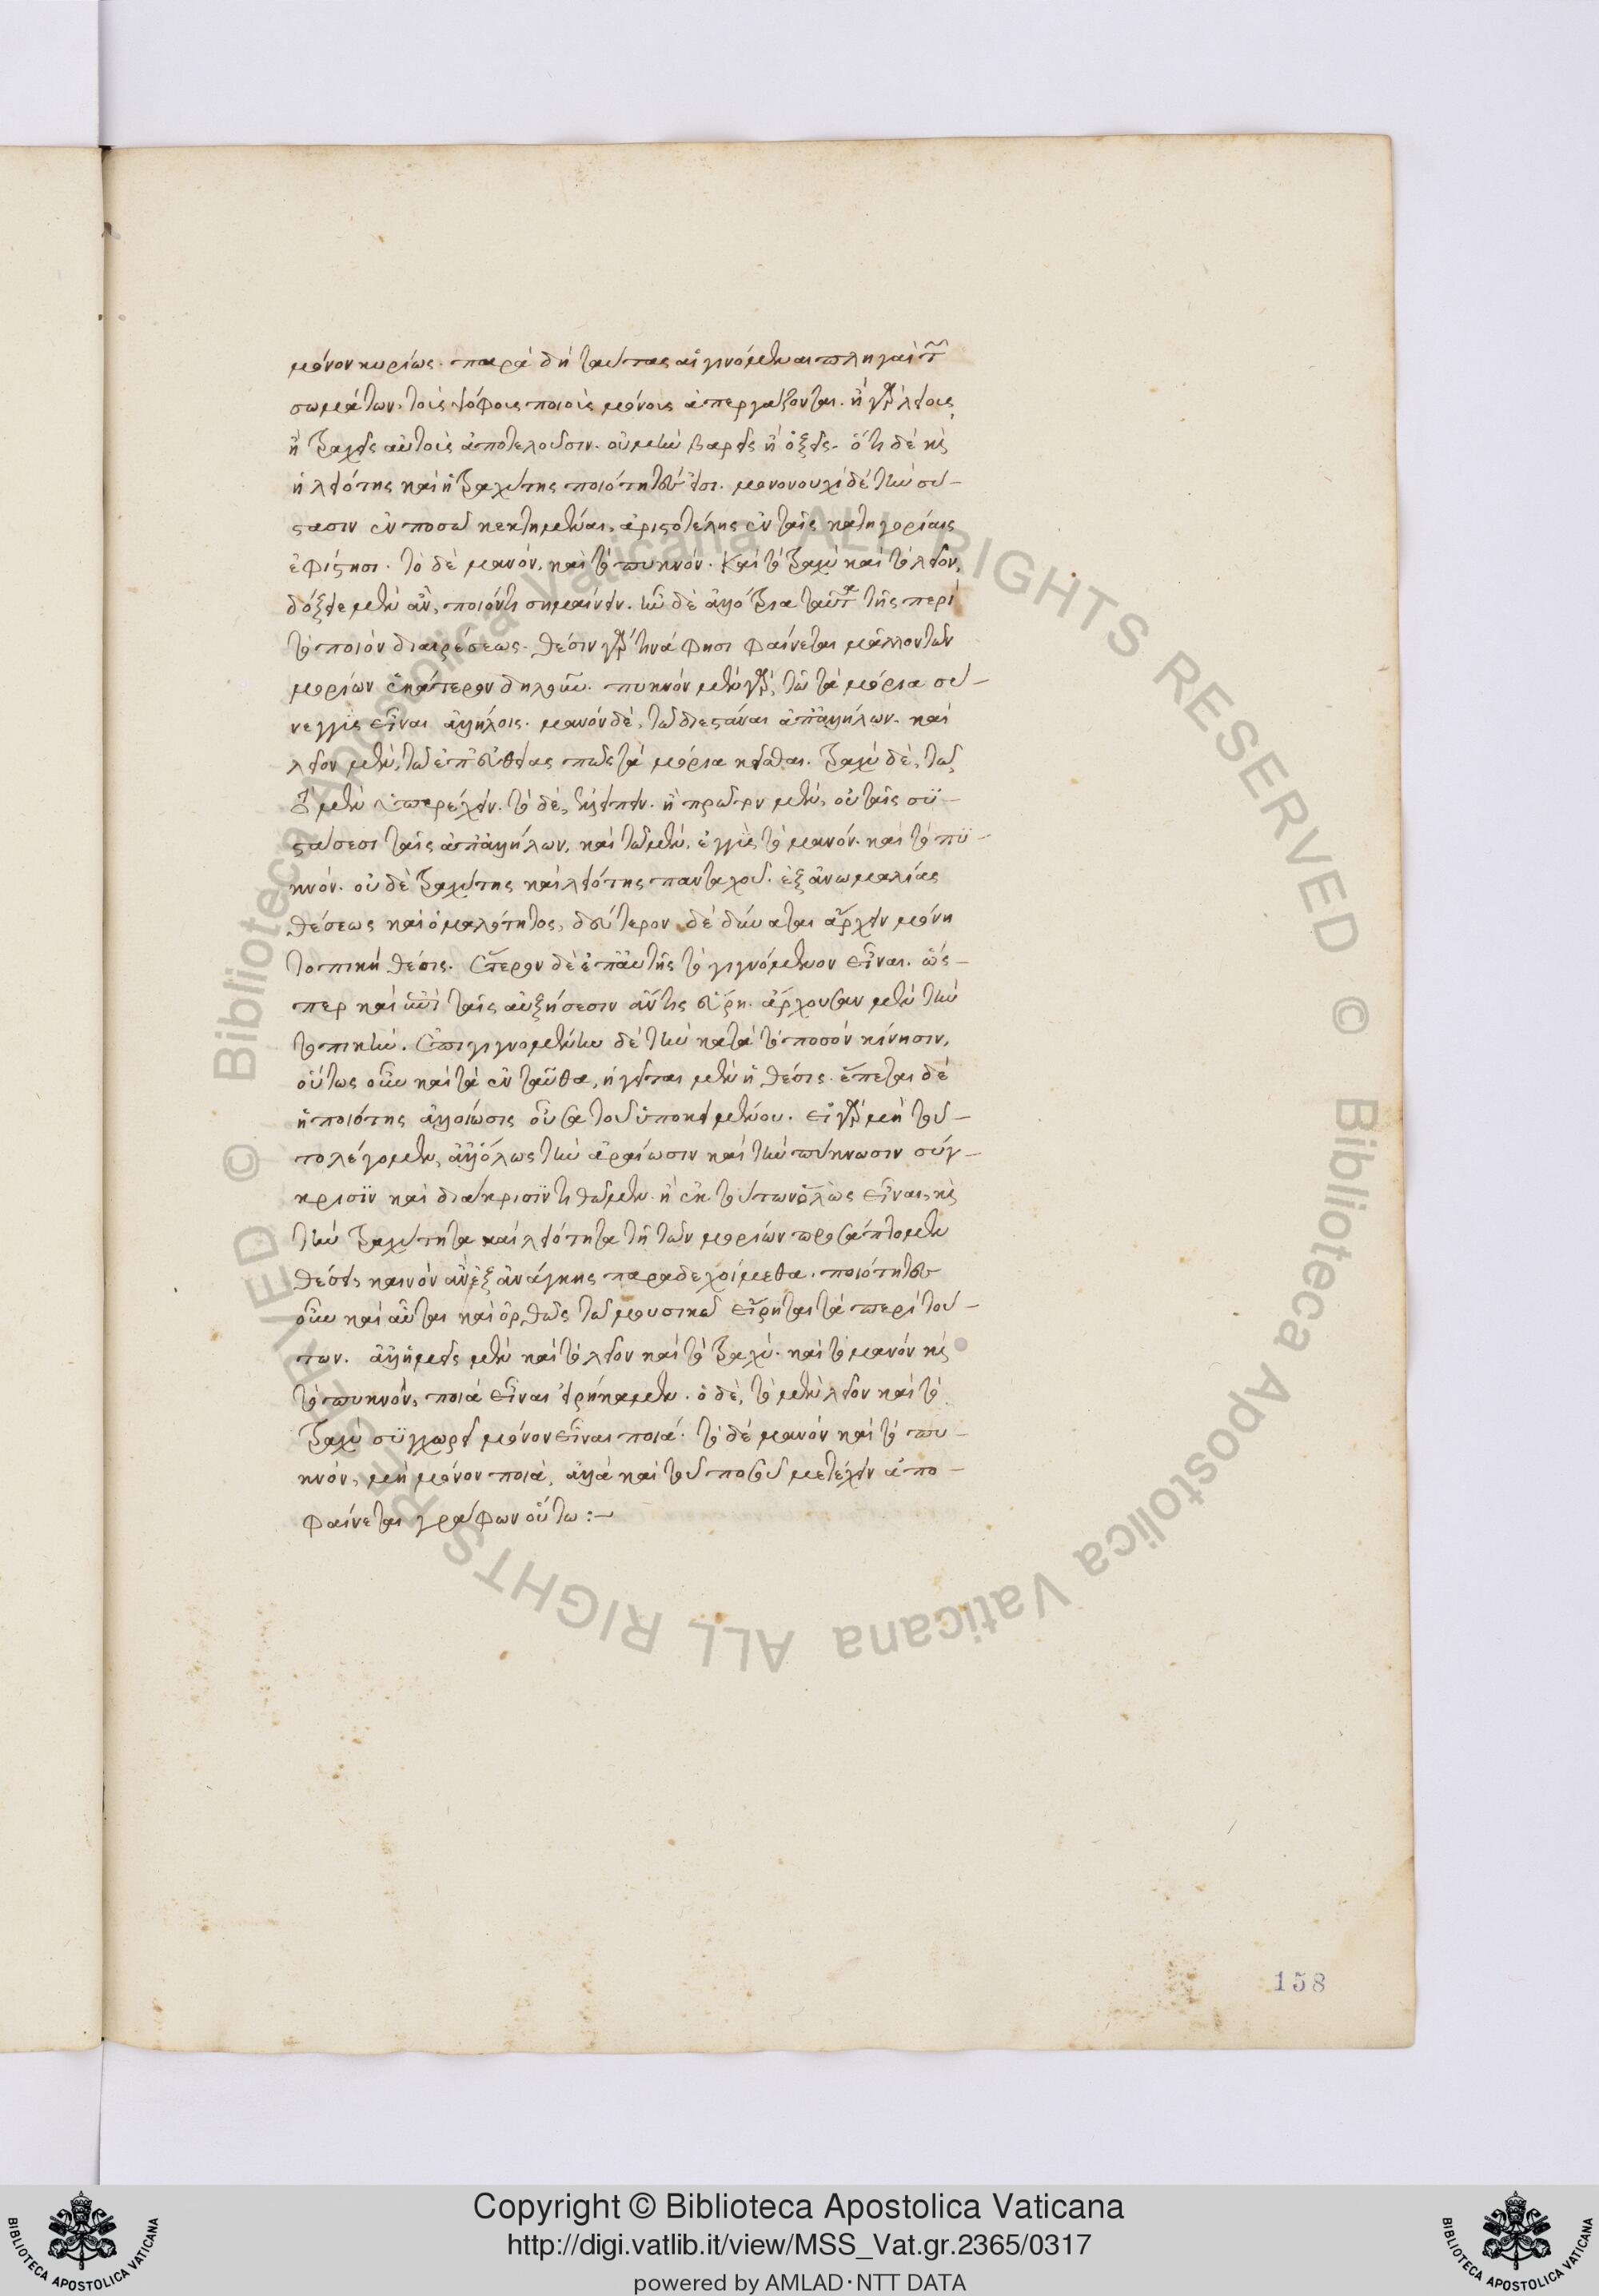 μόνον κυρίως. παρὰ δὴ ταύτας αἱ γινόμεναι πληγαὶ τῶν
σωμάτων, τοὺς ψόφους ποιοὺς μόνους ἀπεργάζονται. ἢ γὰρ λείους
ἢ τραχεῖς αὐτοὺς ἀποτελοῦσιν. οὐ μὴν βαρεῖς ἢ ὀξεῖς. ὅτι δὲ καὶ
ἡ λειότης καὶ ἡ τραχύτης ποιότητές εἰσι. μονονουχὶ δὲ τὴν σύ-
στασιν ἐν ποσῷ κεκτημέναι, ἀριστοτέλης ἐν ταῖς κατηγορίαις
ἐφίστησι. τὸ δὲ μανόν, καὶ τὸ πυκνόν. καὶ τὸ τραχὺ καὶ τὸ λεῖον,
δόξειε μὲν ἂν, ποιόν τι σημαίνειν. ἔοικε δὲ ἀλλότρια ταῦτα τῆς περὶ
τὸ ποιὸν διαιρέσεως. θέσιν γάρ τινά φησι φαίνεται μᾶλλον τῶν
μορίων ἑκάτερον δηλοῦν. πυκνὸν μὲν γὰρ, τῷ τὰ μόρια σύ-
νεγγυς εἶναι ἀλλήλοις. μανὸν δὲ, τῷ διεστάναι ἀπ' ἀλλήλων. καὶ
λεῖον μὲν, τῷ ἐπ' εὐθείας πως τὰ μόρια κεῖσθαι. τραχὺ δὲ, τῷ
τὸ μὲν ὑπερέχειν. τὸ δὲ, ἐλλείπειν. ἢ πρῶτον μὲν, οὐ ταῖς συ-
στάσεσι ταῖς ἀπ' ἀλλήλων, καὶ τῷ μὲν, ἐγγὺς τὸ μανόν. καὶ τὸ πυ-
κνόν. οὐδὲ τραχύτης καὶ λειότης πανταχοῦ. ἐξ ἀνωμαλίας
θέσεως καὶ ὁμαλότητος, δεύτερον δὲ δύναται ἄρχειν μόνη
τοπικὴ θέσις. ἕτερον δὲ ἐπ' αὐτῆς τὸ γιγνόμενον εἶναι. ὥς-
περ καὶ ἐπὶ ταῖς αὐξήσεσιν ἄν τις εὕρῃ. ἄρχουσαν μὲν τὴν
τοπικήν. ἐπιγιγνομένην δὲ τὴν κατὰ τὸ ποσὸν κίνησιν,
οὕτως οὖν καὶ τὰ ἐνταῦθα, ἡγεῖται μὲν ἡ θέσις. ἕπεται δὲ
ἡ ποιότης ἀλλοίωσις οὖσα τοῦ ὑποκειμένου. εἰ γὰρ μὴ τοῦ-
το λέγομεν, ἀλλ' ὅλως τὴν ἀραίωσιν καὶ τὴν πύκνωσιν σύγ-
κρισιν καὶ διάκρισιν τιθῶμεν. ἢ ἐκ τούτων ὅλως εἶναι, καὶ
τὴν τραχύτητα καὶ λειότητα τῇ τῶν μορίων προσάπτομεν
θέσει, καινὸν ἂν ἐξ ἀνάγκης παραδεχοίμεθα. ποιότητες
οὖν καὶ αὗται καὶ ὀρθῶς τῷ μουσικῷ εἴρηται τὰ περὶ τού-
των. ἀλλ' ἡμεῖς μὲν καὶ τὸ λεῖον καὶ τὸ τραχύ. καὶ τὸ μανὸν καὶ
τὸ πυκνόν, ποιὰ εἶναι εἰρήκαμεν. ὁ δὲ, τὸ μὲν λεῖον καὶ τὸ
τραχὺ συγχωρεῖ μόνον εἶναι ποιά. τὸ δὲ μανὸν καὶ τὸ πυ-
κνόν, μὴ μόνον ποιὰ, ἀλλὰ καὶ τοῦ ποσοῦ μετέχειν ἀπο-
φαίνεται γράφων οὕτω:-
158
Copyright © Biblioteca Apostolica Vaticana
http://digi.vatlib.it/view/MSS_Vat.gr.2365/0317
powered by AMLAD·NTT DATA